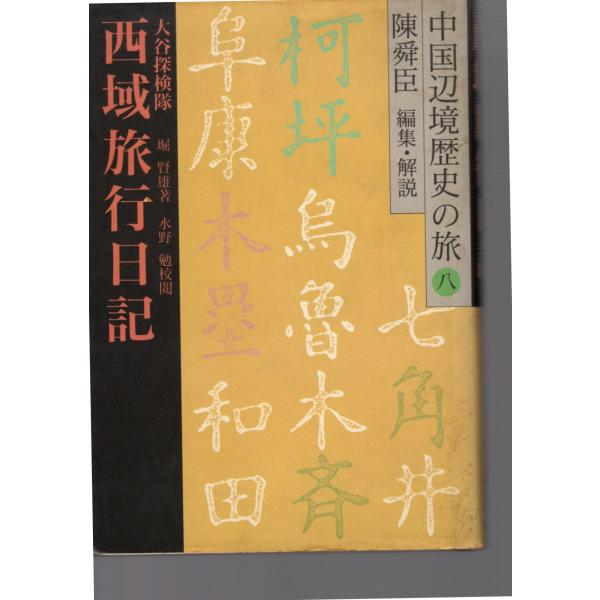 中国辺境歴史の旅 八
陳舜臣 編集・解説
七角井
柯坪
烏魯木斉
阜康
木塁
和田
大谷探検隊
堀 賢雄著 水野 勉校閲
西域旅行日記